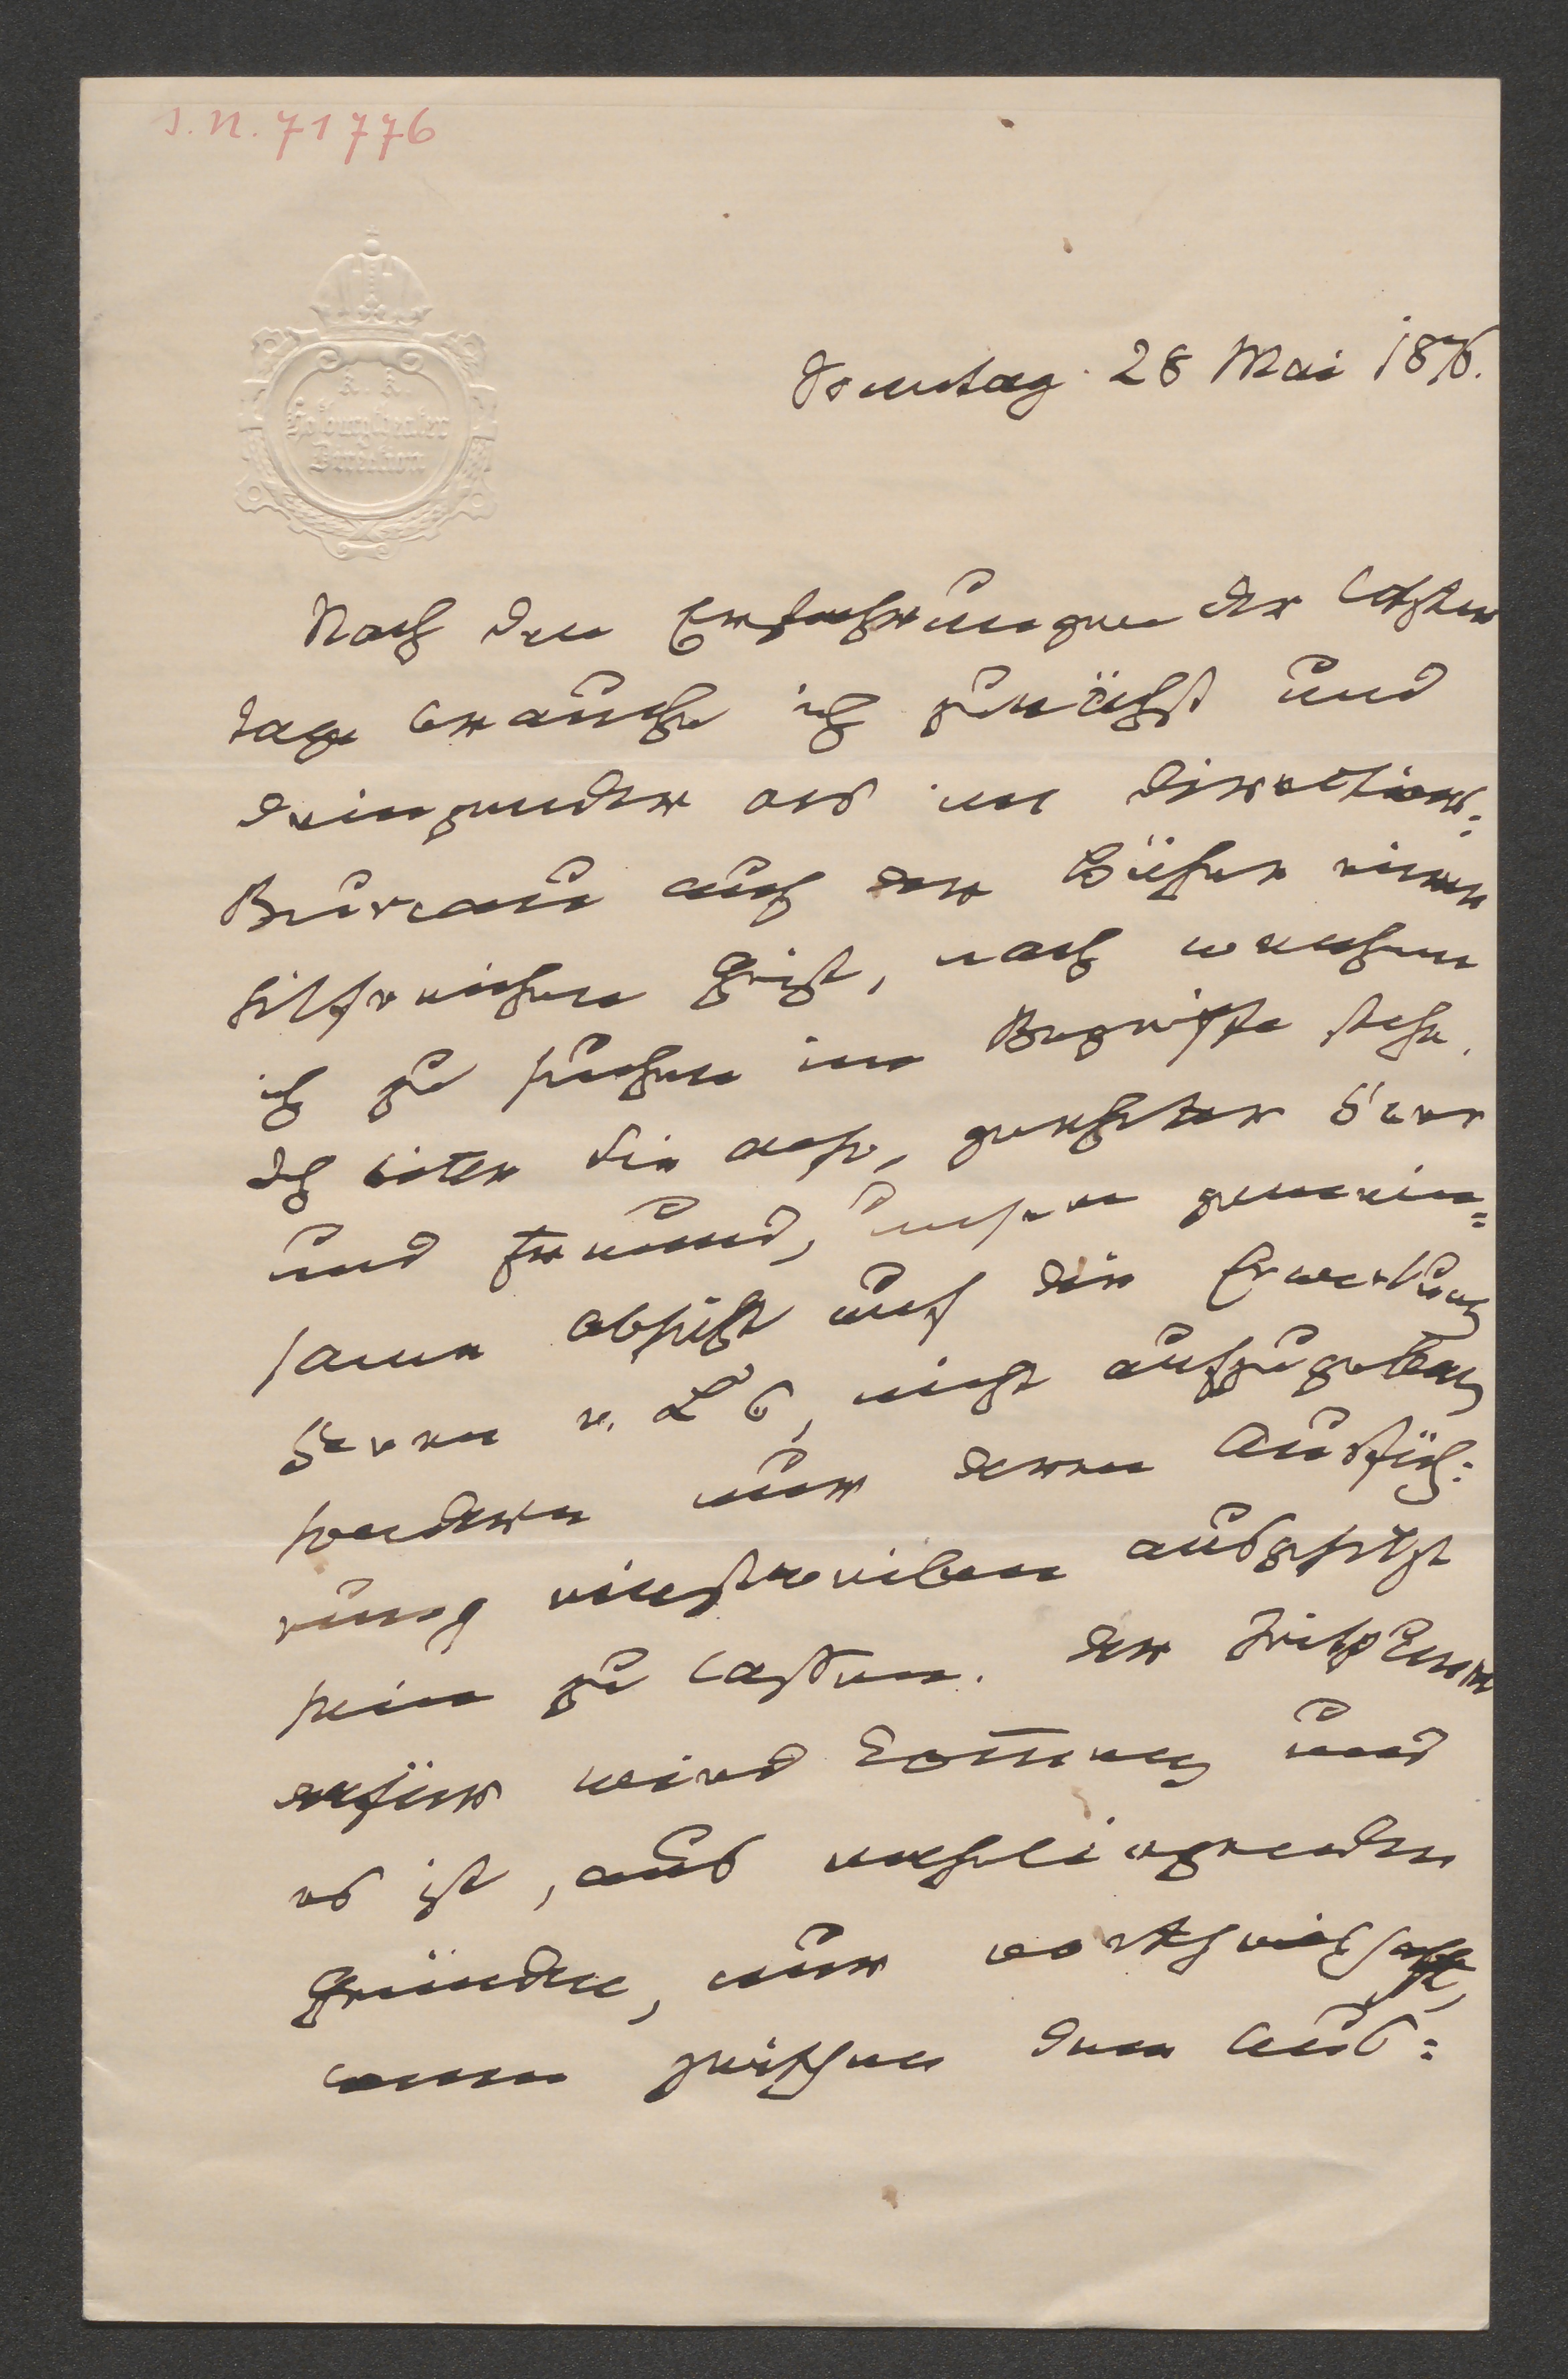 I.N. 71776
K. K.
Hofburgtheater
Direction
Sonntag 28 Mai 1876.
Nach den Erfahrungen der letzten
Tage brauche ich zunächst und
dringender als im Directions-
Bureau auf der Bühne einen
hilfreichen Geist, nach welchem
ich zu suchen im Begriffe stehe.
Ich bitte Sie also, geehrter Herr
und Freund, unsere gemein=
same Absicht auf die Erwerbung
Herrn v. nicht aufzugeben,
sondern nur deren Ausfüh:
rung einstweilen ausgesetzt
sein zu lassen. Der Zeitpunkt
dafür wird kom̅en, und
es ist, aus naheliegenden
Gründen, nur vortheilhaft,
wenn zwischen dem Aus: